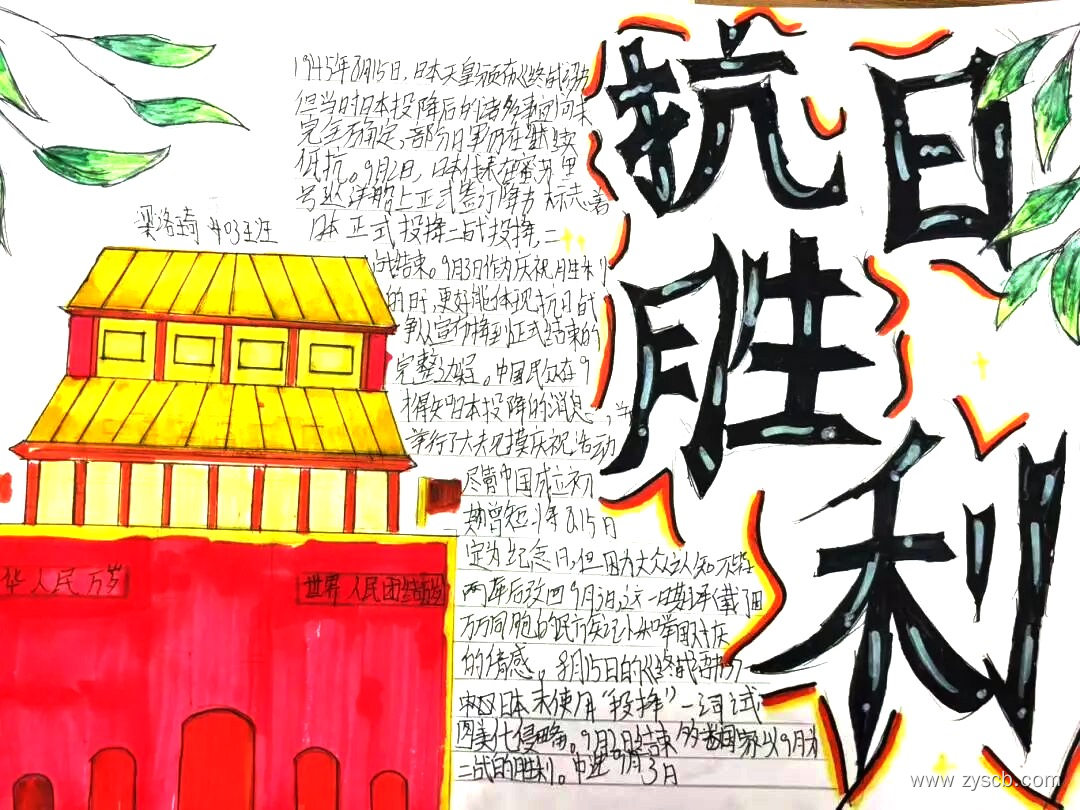 抗日
胜利
1945年8月15日,日本天皇颁布《终战诏书
但当时日本投降后的诸多事问未
完全确定,部分日军仍在继续
抵抗。9月2日,日本代表在密苏里
号 上正式签订降书 标志着
日本正式投降二战投降,二
战结束。9月3日作为庆祝胜利
的日子,更好能体现抗日战
争从宣布投降到正式结束的
完整过程。中国民众在9
才得知日本投降的消息,
举行了大夫见模庆祝活动
尽管中国成立初
期曾短 将8月15日
定为纪念日,但因为大众认知不
两年后改回9月3日,这一日期承载了
万万同胞的民
的情感。8月15日的《终战诏书》
中日本未使用“投降”一词试
图美化侵略。9月 日结束 国家以9月
二战的胜利。中 9月3日
4 班
华人民万岁
世界人民团结万岁
www.zyscb.com